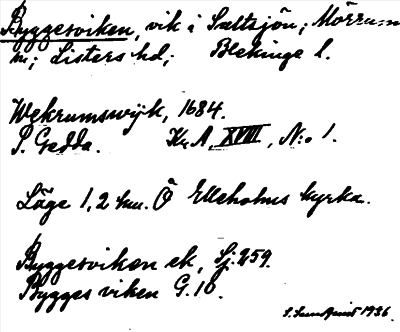 Byggesviken, vik i Saltsjön; Mörrum
m; Listers hd; Blekinge l.
Wekrumswijk, 1684.
P. Gedda. Kr.A, XVIII, N:o 1.
Läge 1,2 km. Ö Elleholms kyrka.
Byggesviken ek, Sj. 259.
Bygges viken G. 10.
1936.